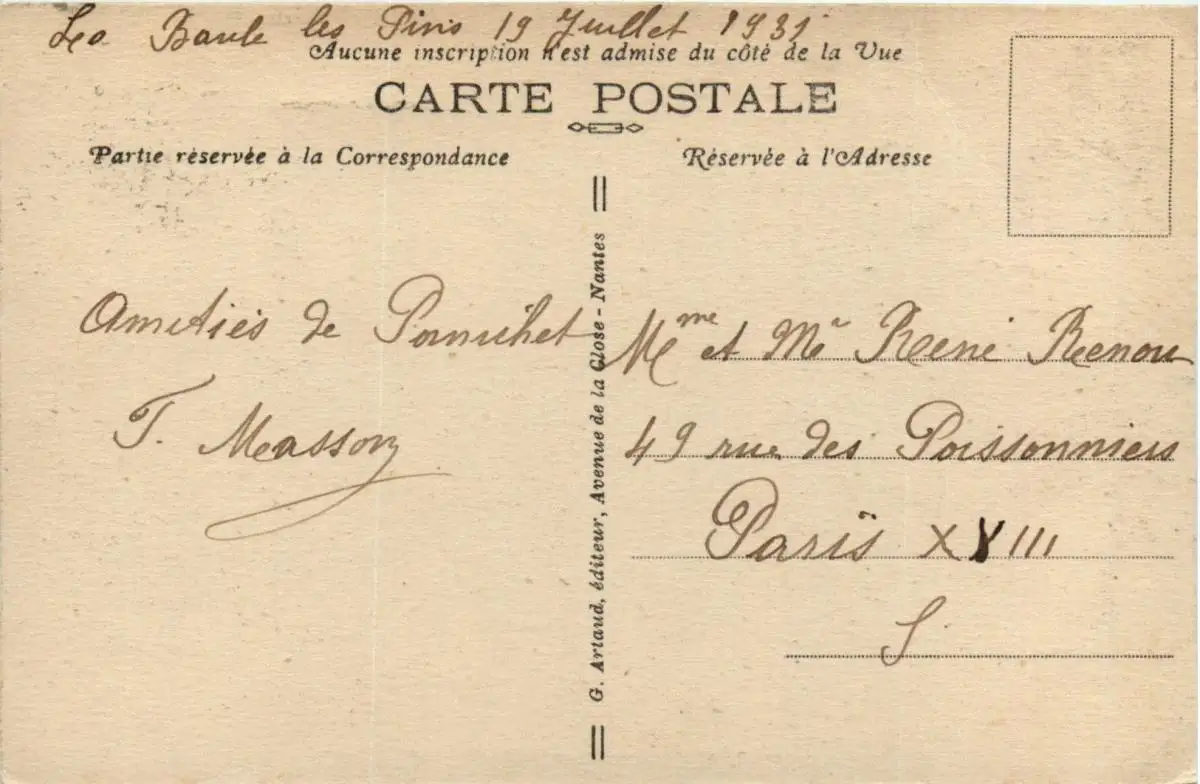 La Baule les Pins 19 Juillet 1931
Aucune inscription n'est admise du côté de la Vue
CARTE POSTALE
Partie réservée à la Correspondance
Réservée à l'Adresse
Amitiés de Pornichet
T. Masson
G. Artaud, éditeur, Avenue de la Close - Nantes
Mme et Mr René Renou
49 rue des Poissonniers
Paris XVIII
S